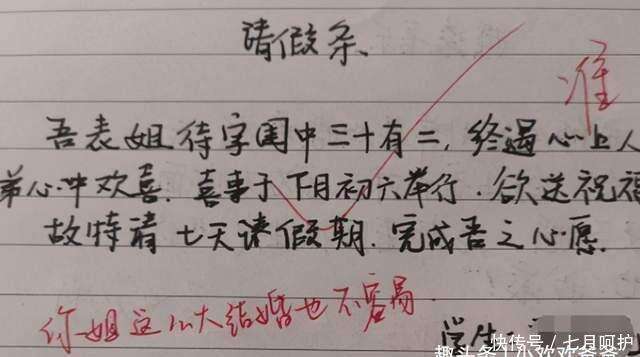 请假条、
准
吾表姐待字闺中三十有二,终遇心上人
弟心中欢喜.喜事于下月初六举行.欲送祝福
故特请七天请假期.完成吾之心愿.
你姐这么大结婚也不容易
学生:
快传号/七月呵护
趣头条